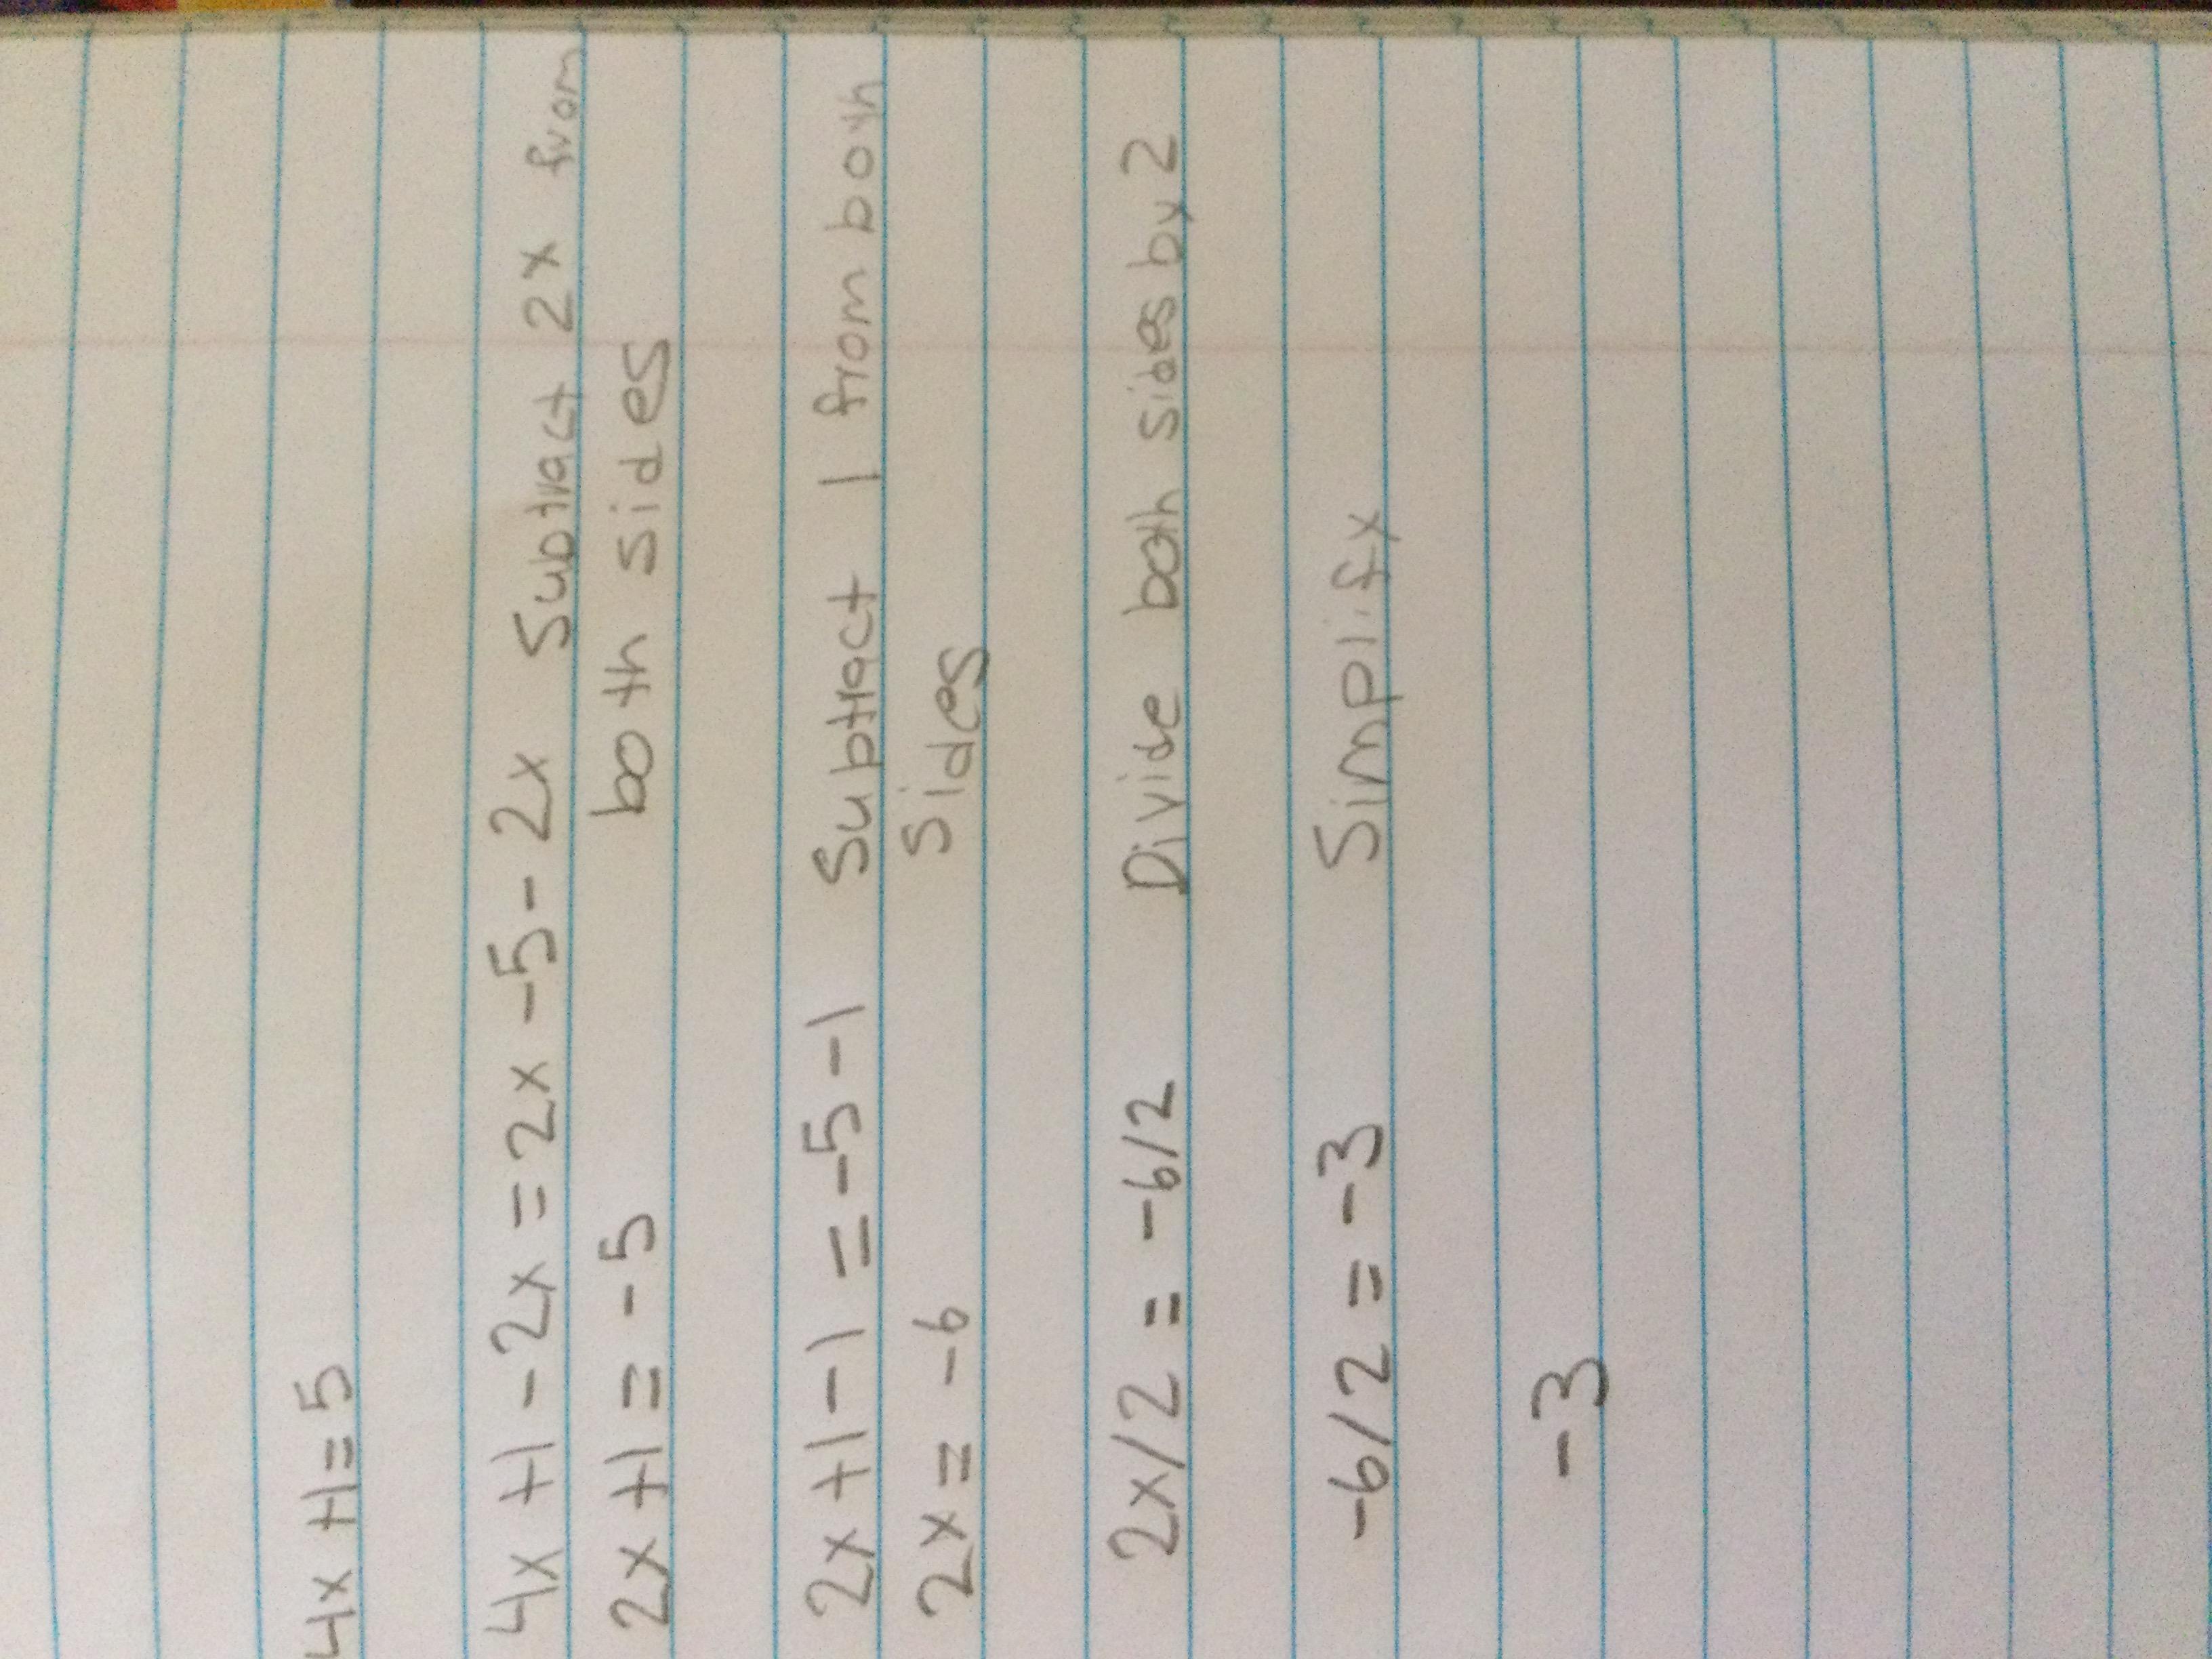 4x +1=5
4x +1-2x=2x-5-2x Subtract 2x from
2x+1=-5 both sides
2x+1-1=-5-1 Subtract 1 from both
2x=-6 Sides
2x/2=-6/2 Divide both sides by 2
-6/2=-3 Simplify
-3